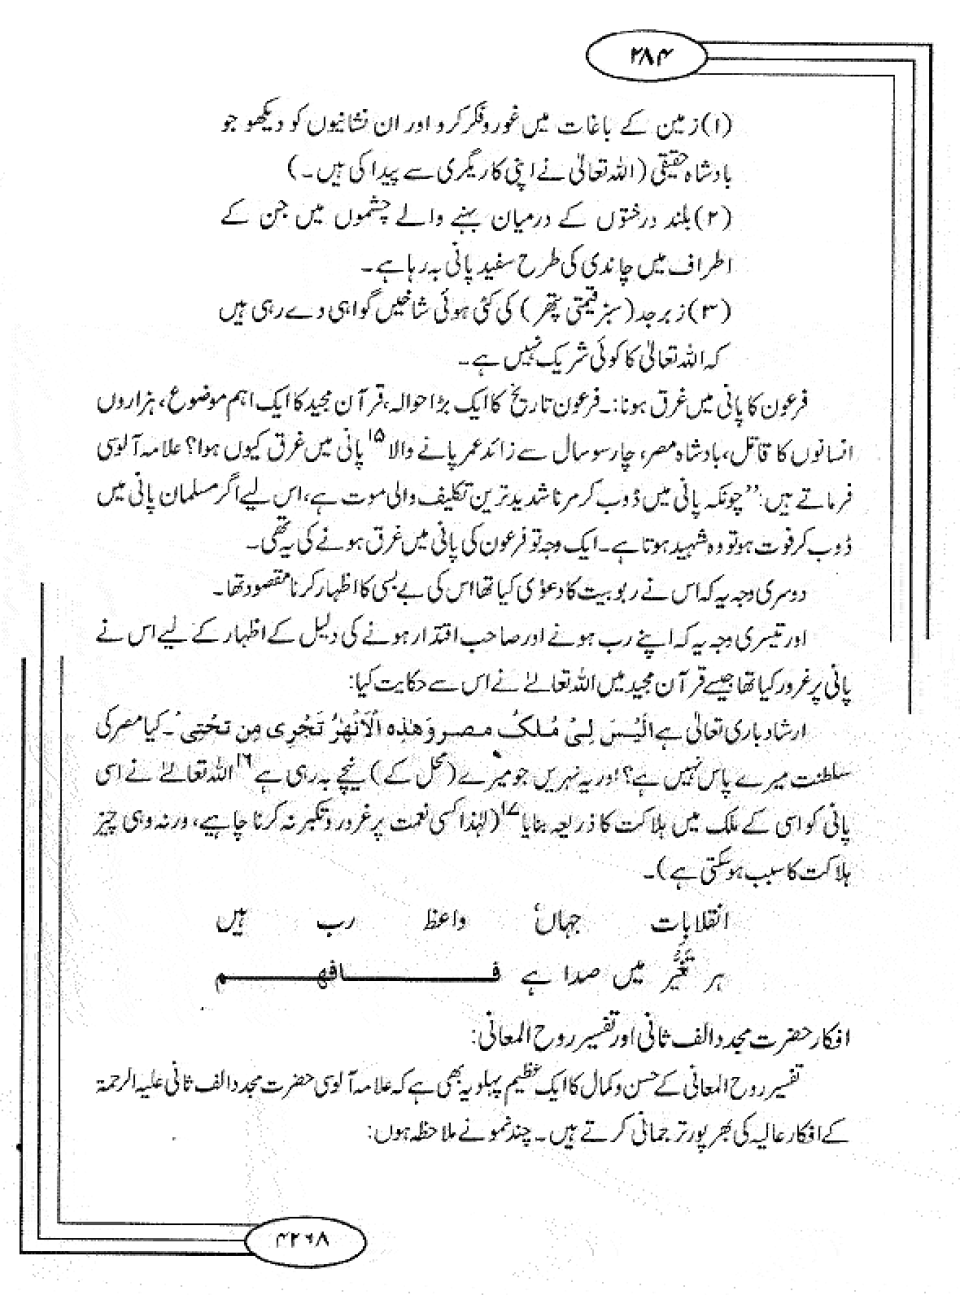 ۲۸۴
(۱) زمین کے باغات میں غور و فکر کرو اور ان نشانیوں کو دیکھو جو
بادشاہ حقیقی (اللہ تعالیٰ نے اپنی کاریگری سے پیدا کی ہیں۔)
(۲) بلند درختوں کے درمیان بہنے والے چشموں میں جن کے
اطراف میں چاندی کی طرح سفید پانی بہ رہا ہے۔
(۳) زبرجد (سبز قیمتی پتھر) کی کٹی ہوئی شاخیں گواہی دے رہی ہیں
کہ اللہ تعالیٰ کا کوئی شریک نہیں ہے۔
فرعون کا پانی میں غرق ہونا:۔ فرعون تاریخ کا ایک بڑا حوالہ، قرآن مجید کا ایک اہم موضوع، ہزاروں
انسانوں کا قاتل، بادشاہ مصر، چار سو سال سے زائد عمر پانے والا ۱۵ پانی میں غرق کیوں ہوا؟ علامہ آلوسی
فرماتے ہیں: ’’چونکہ پانی میں ڈوب کر مرنا شدید ترین تکلیف والی موت ہے، اس لیے اگر مسلمان پانی میں
ڈوب کر فوت ہو تو وہ شہید ہوتا ہے۔ ایک وجہ تو فرعون کی پانی میں غرق ہونے کی یہ تھی۔
دوسری وجہ یہ کہ اس نے ربوبیت کا دعوٰی کیا تھا اس کی بے بسی کا اظہار کرنا مقصود تھا۔
اور تیسری وجہ یہ کہ اپنے رب ہونے اور صاحب اقتدار ہونے کی دلیل کے اظہار کے لیے اس نے
پانی پر غرور کیا تھا جیسے قرآن مجید میں اللہ تعالےٰ نے اس سے حکایت کیا:
ارشاد باری تعالٰی ہے اَلَیْسَ لِیْ مُلْکُ مصر وَھٰذِہِ الْاَنْھٰرُ تَجْرِی مِن تَحْتِیْ۔ کیا مصر کی
سلطنت میرے پاس نہیں ہے؟ اور یہ نہریں جو میرے (محل کے) نیچے بہ رہی ہے ۱۶ اللہ تعالےٰ نے اسی
پانی کو اسی کے ملک میں ہلاکت کا ذریعہ بنایا ۱۷ (لہٰذا کسی نعمت پر غرور و تکبر نہ کرنا چاہیے، ورنہ وہی چیز
ہلاکت کا سبب ہو سکتی ہے)۔
انقلابات جہاں واعظ رب ہیں
ہر تغیّر میں صدا ہے فافھم
افکار حضرت مجدد الف ثانی اور تفسیر روح المعانی:
تفسیر روح المعانی کے حسن و کمال کا ایک عظیم پہلو یہ بھی ہے کہ علامہ آلوسی حضرت مجدد الف ثانی علیہ الرحمۃ
کے افکار عالیہ کی بھر پور ترجمانی کرتے ہیں۔ چند نمونے ملاحظہ ہوں:
۴۲۶۸